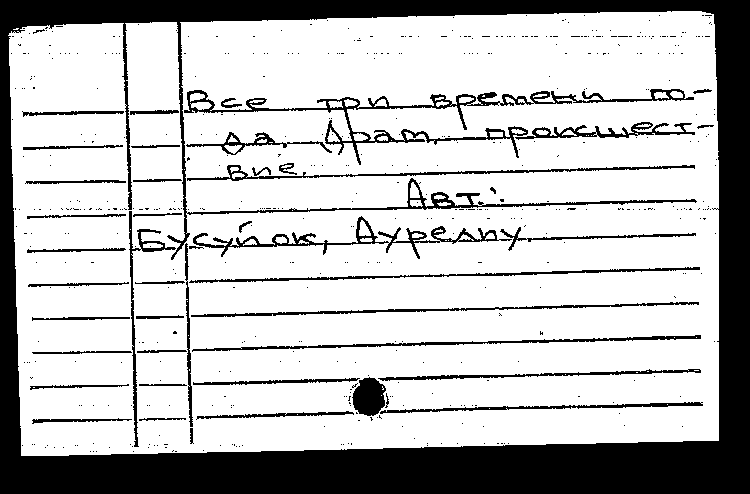 Все три времени го-
да. Драт. происшест-
вие.
Авт.:
Бусуйок, Аурелиу.